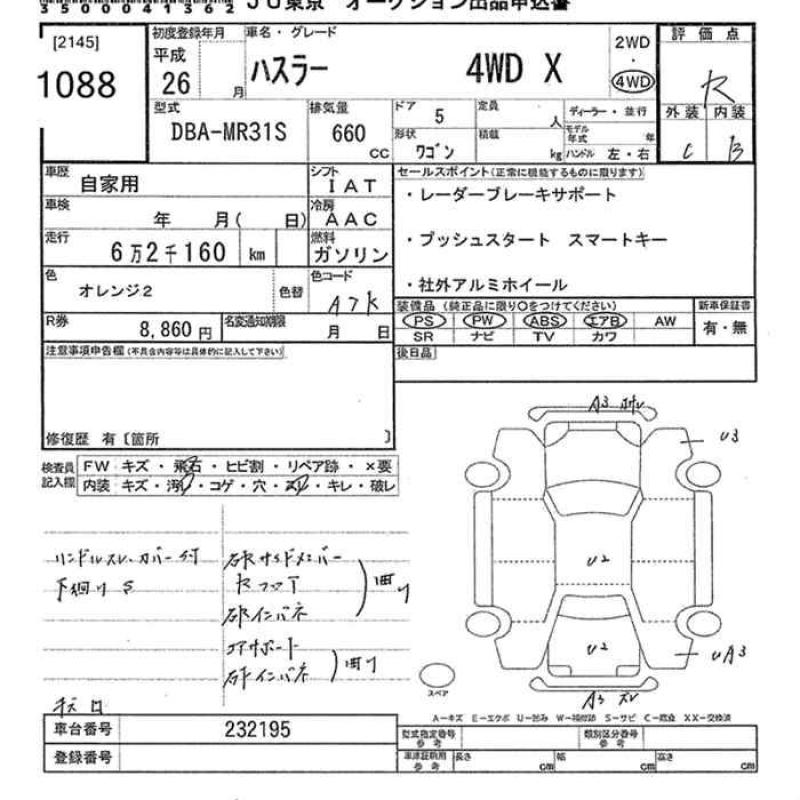 3500041362 JU東京 オークション出品申込書
[2145]
1088
初度登録年月
平成
26
月
車名・グレード
ハスラー 4WD X
2WD
・
4WD
評価点
R
外装 内装
C B
型式
DBA-MR31S
排気量
660
CC
ドア
5
定員
人
ディーラー・並行
モデル年式
年
形状
ワゴン
積載
kg
ハンドル 左・右
車歴
自家用
シフト
IAT
車検
年 月( 日)
冷房
AAC
走行
6万2千160 km
燃料
ガソリン
色
オレンジ2
色替
色コード
A7K
R券
8,860 円
名変通知期限
月 日
セールスポイント(正常に機能するものに限ります)
・レーダーブレーキサポート
・プッシュスタート スマートキー
・社外アルミホイール
装備品(純正品に限り○をつけてください)
PS PW ABS エアB AW
SR ナビ TV カワ
新車保証書
有・無
後日品
注意事項申告欄(不具合内容等は具体的に記入して下さい)
修復歴 有〔箇所 〕
検査員記入欄
FW キズ・飛石・ヒビ割・リペア跡・×要
内装 キズ・汚れ・コゲ・穴・スレ・キレ・破レ
ハンドルスレ、カバー付
下廻り S
A3
U3
U2
U2
UA3
A3 スレ
スペア
A-キズ E-エクボ U-凹み W-補修跡 S-サビ C-腐食 XX-交換済
車台番号 232195
登録番号
型式指定番号 参考
類別区分番号 参考
車庫証明用 参考
長さ cm 幅 cm 高さ cm